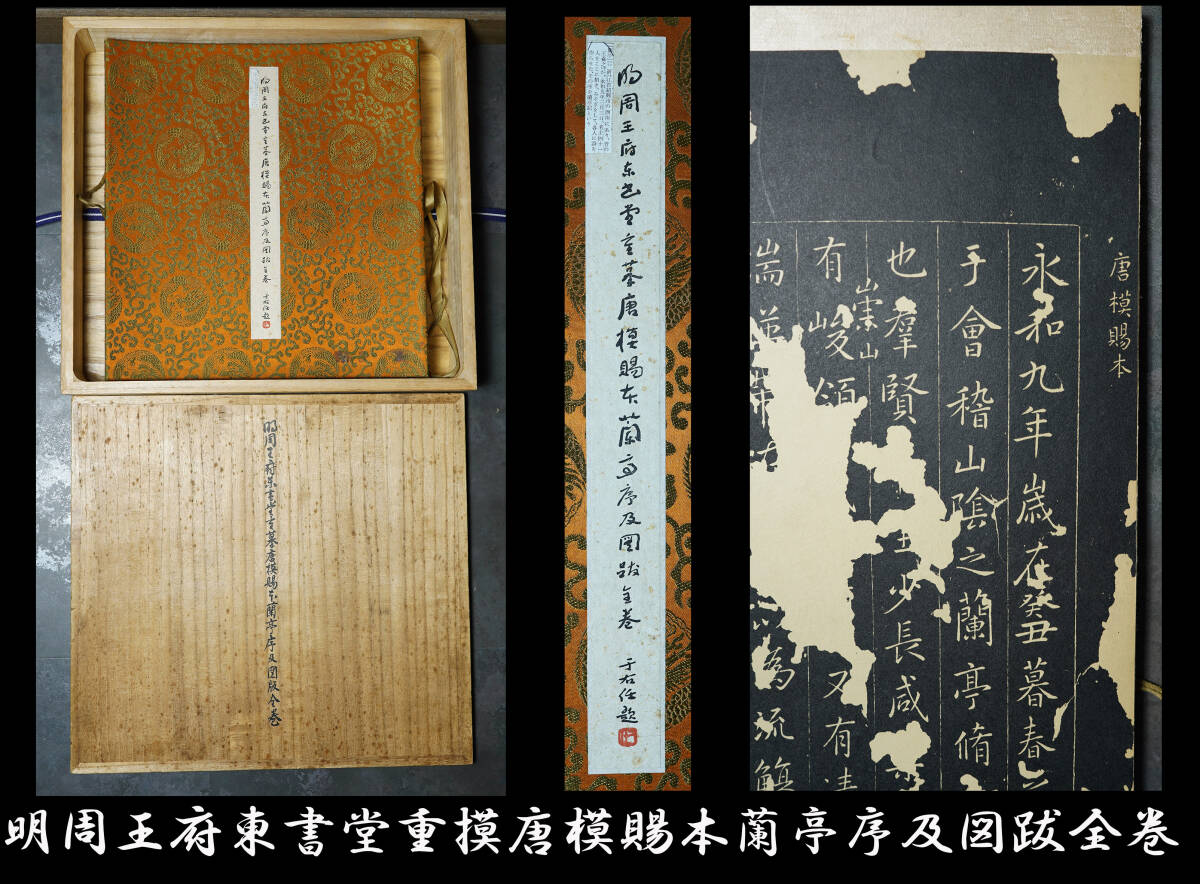 明周王府东书堂重摹唐模賜本蘭亭序及圖跋全卷
于右任題
明周王府東書堂重摹唐模賜本蘭亭序及図版全巻
明周王府东书堂重摹唐模賜本蘭亭序及圖跋全卷
于右任題
唐模賜本
永和九年歲在癸丑暮春
于會稽山陰之蘭亭脩
也羣賢
少長咸
崇山
有峻領
又有清
為流觴
明周王府東書堂重摸唐模賜本蘭亭序及図跋全巻